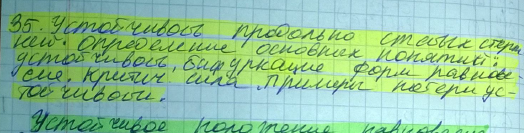 35. Устойчивось продольно сжатых стерж
ней. Определение основных понятий:
устойчивось, бифуркация форм равнове
сия. Критич. сила. Примеры потери ус-
тойчивости.
Устойчивое положение равновесия